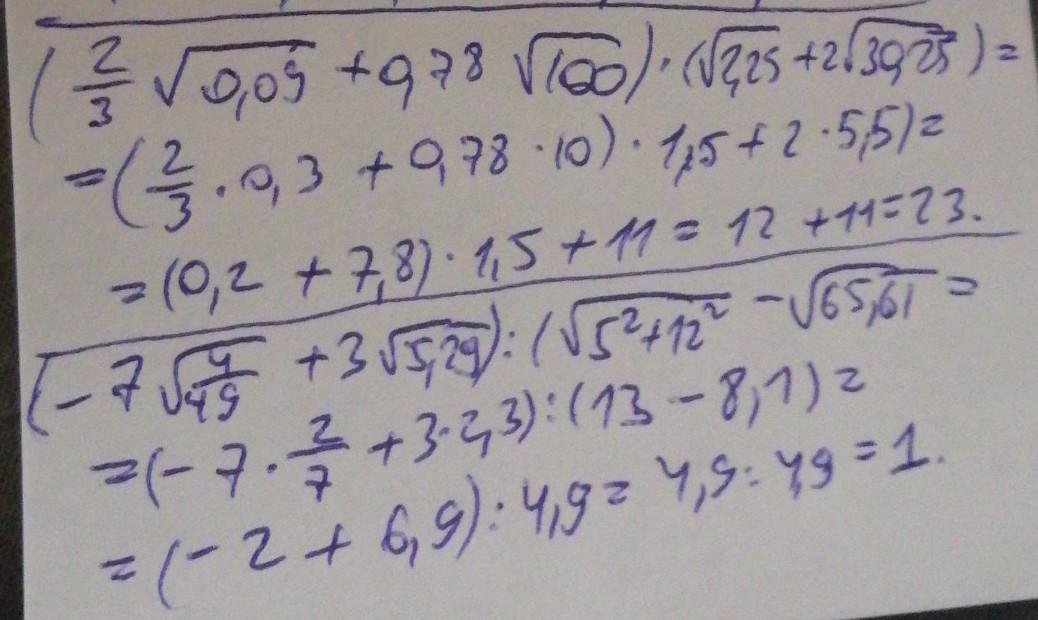 (2/3 √0,09 + 0,78 √100) · (√2,25 + 2√30,25) =
= (2/3 · 0,3 + 0,78 · 10) · 1,5 + 2 · 5,5) =
= (0,2 + 7,8) · 1,5 + 11 = 12 + 11 = 23.
(- 7 √4/49 + 3 √5,29) : (√5²+12² - √65,61 =
= (- 7 · 2/7 + 3·2,3) : (13 - 8,1) =
= (- 2 + 6,9) : 4,9 = 4,9 : 4,9 = 1.